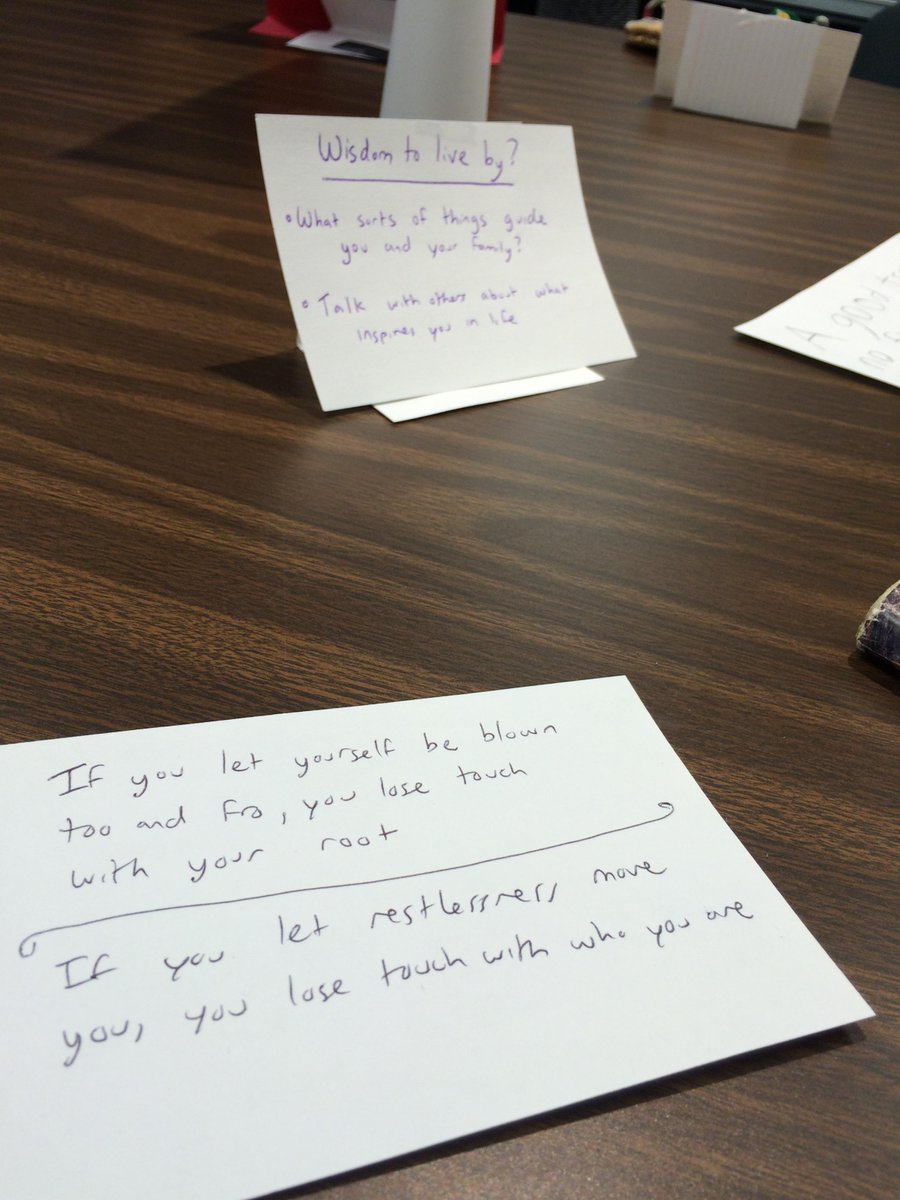 Wisdom to live by?
• What sorts of things guide
you and your family?
• Talk with others about what
inspires you in life
A good
no
If you let yourself be blown
too and fro, you lose touch
with your root
If you let restlessness move
you, you lose touch with who you are